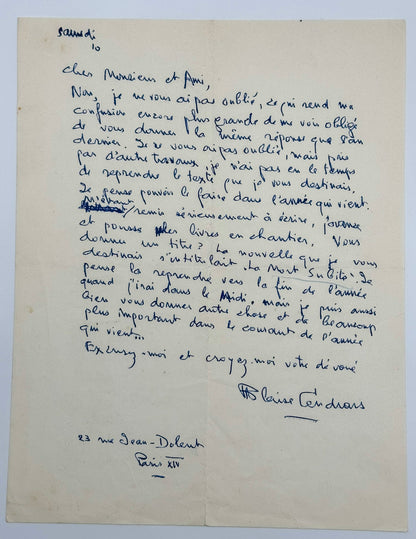 samedi
10
Cher Monsieur et Ami,
Non, je ne vous ai pas oublié, ce qui rend ma
confusion encore plus grande de me voir obligé
de vous donner la même réponse que l'an
dernier. Je ne vous ai pas oublié, mais pris
par d'autres travaux, je n'ai pas eu le temps
de reprendre le texte que je vous destinais.
Je pense pouvoir le faire dans l'année qui vient.
m'étant
remis sérieusement à écrire, j'avance
et pousse les livres en chantier. Vous
donner un titre? La nouvelle que je vous
destinais s'intitulait: La Mort Subite. Je
pense la reprendre vers la fin de l'année
quand j'irai dans le Midi, mais je puis aussi
bien vous donner autre chose et de beaucoup
plus important dans le courant de l'année
qui vient...
Excusez-moi et croyez-moi votre dévoué
Blaise Cendrars
23 rue Jean-Dolent
Paris XIV